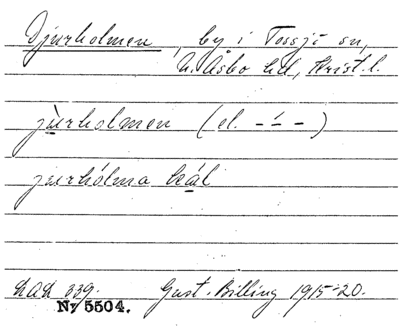 Djurholmen, by i Tossjö sn,
N. Åsbo hd, Krist. l.
jùrholmen (el. – ́– –)
jurhólma beál
LAL 339. Gust. Billing 1915-20.
Ny 5504.